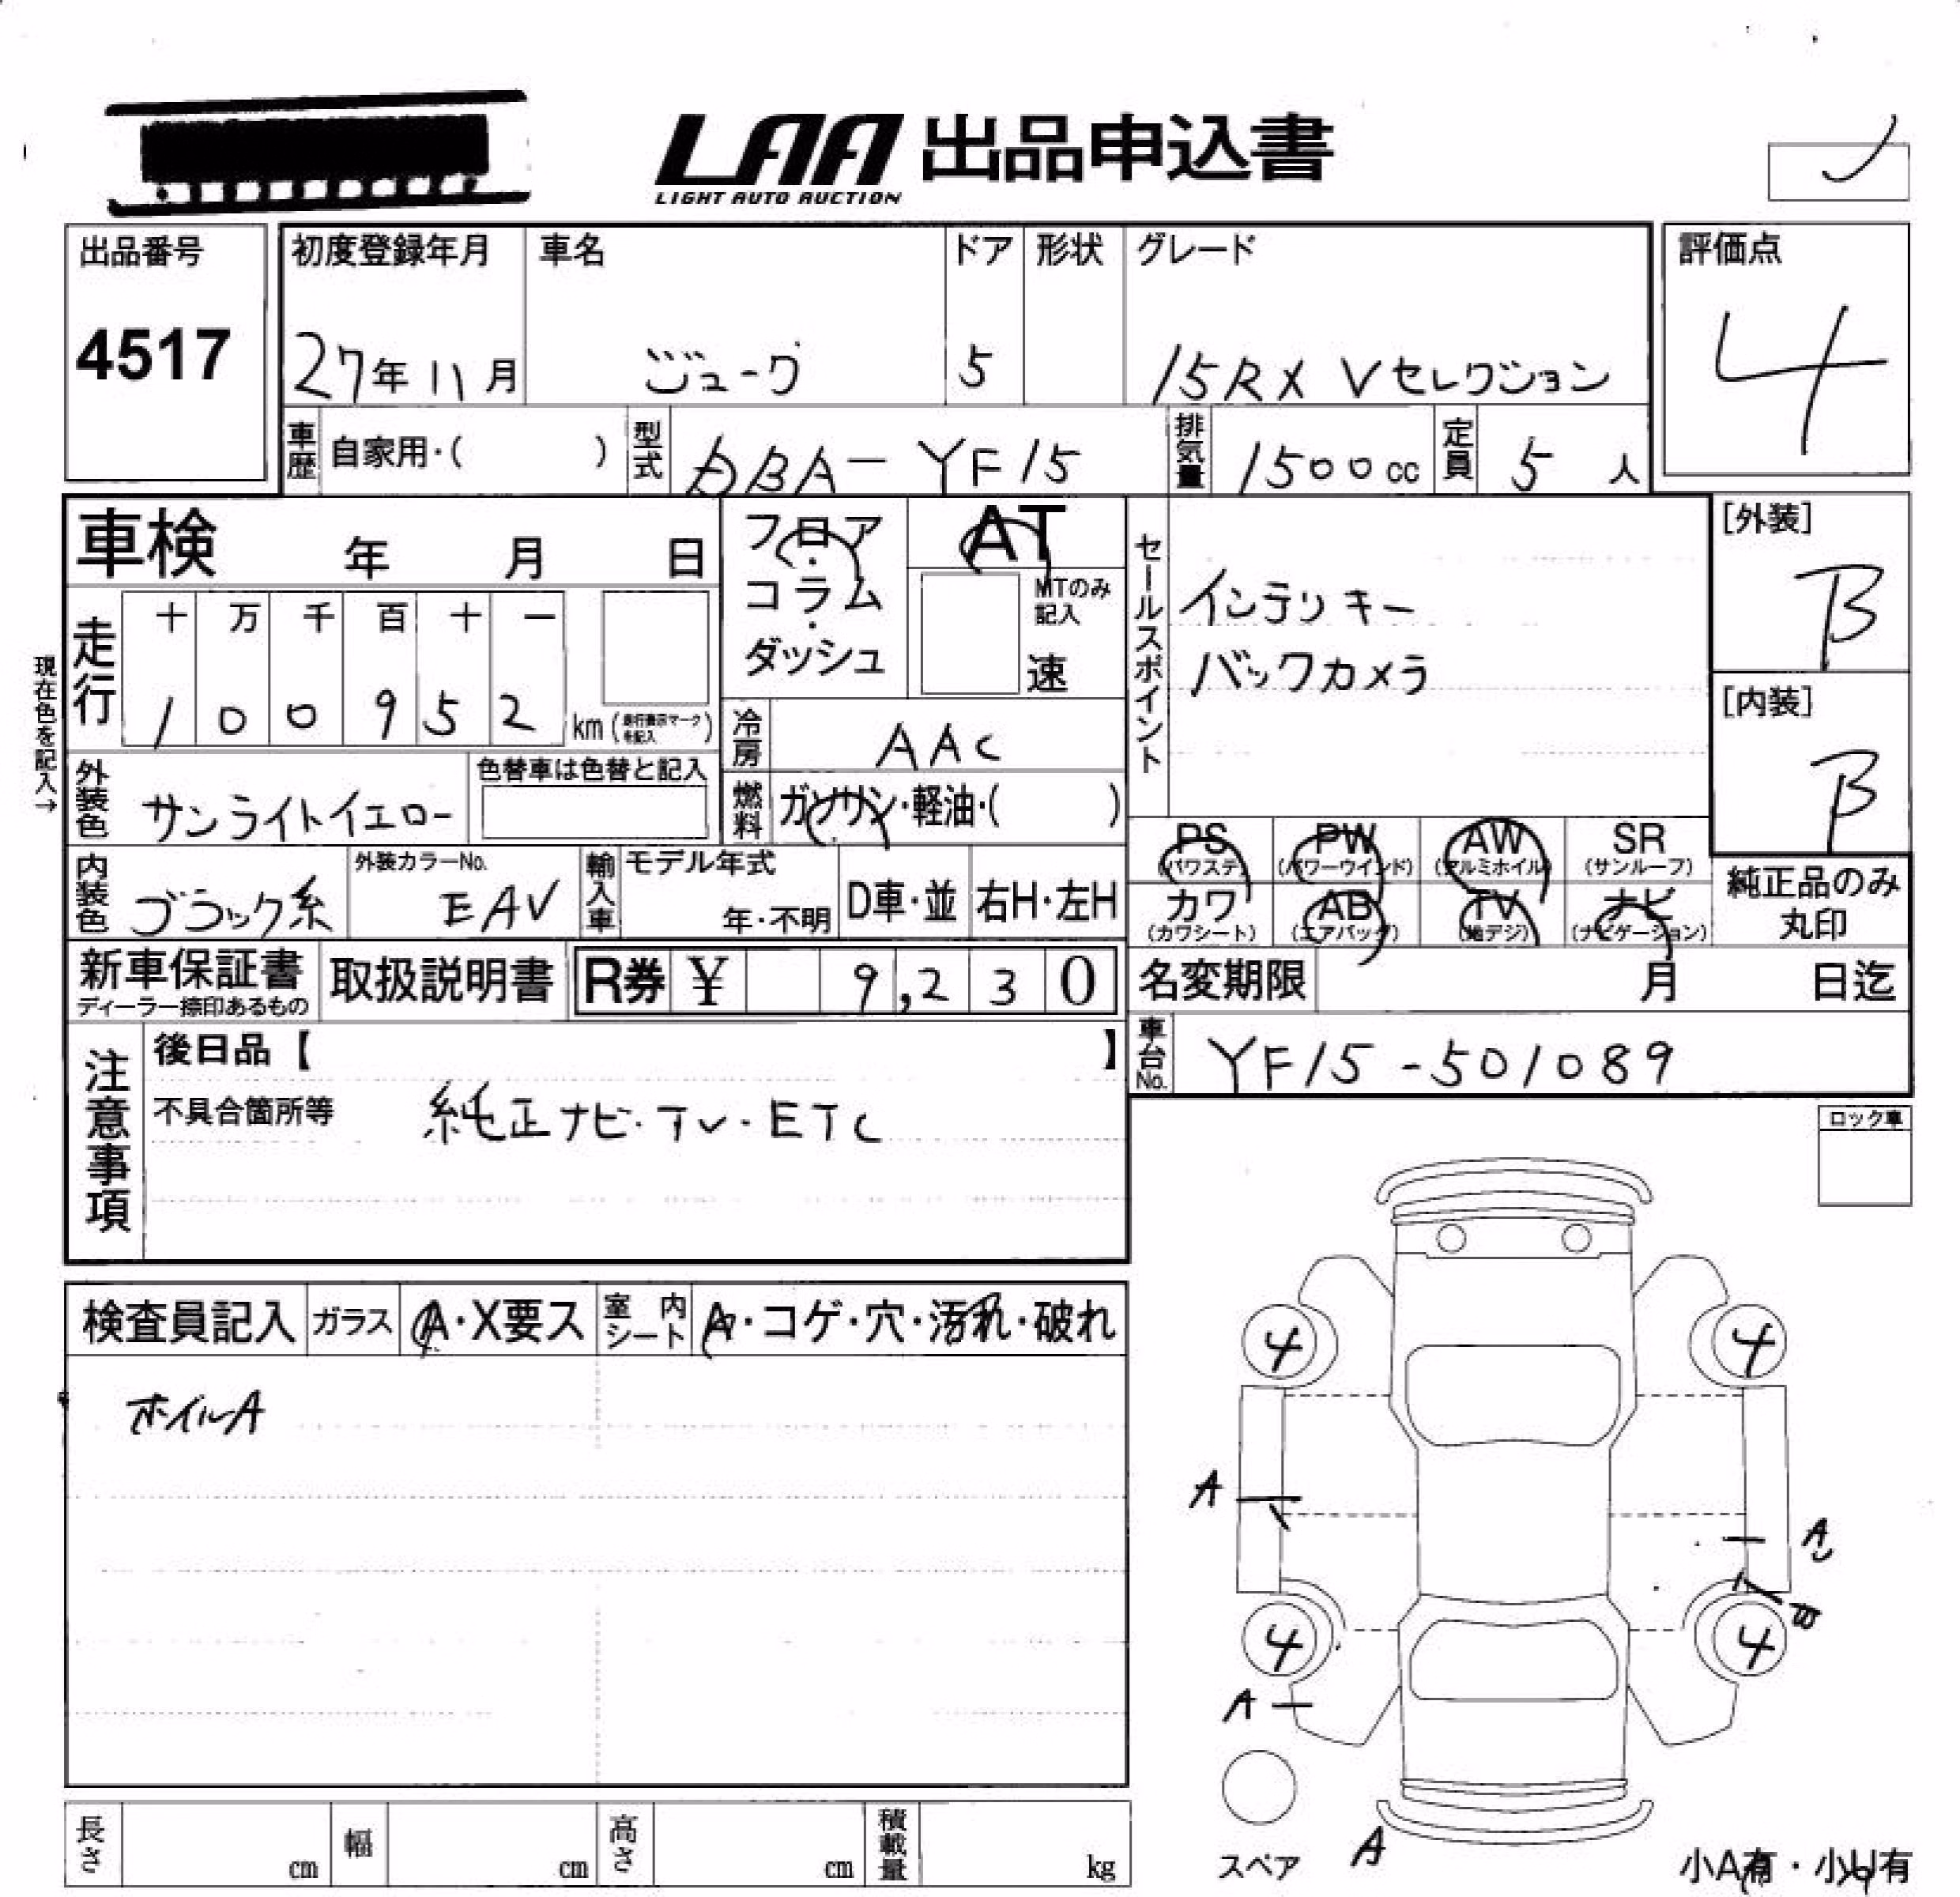 LAA 出品申込書
LIGHT AUTO AUCTION
出品番号 4517
初度登録年月 27年11月
車名 ジューク
ドア 5
形状
グレード 15RX Vセレクション
評価点 4
車歴 自家用・( )
型式 DBA-YF15
排気量 1500cc
定員 5人
車検 年 月 日
フロア・コラム・ダッシュ
AT
MTのみ記入
速
セールスポイント
インテリキー
バックカメラ
[外装] B
[内装] B
現在色を記入→
走行 十 万 千 百 十 一
1 0 0 9 5 2 km (走行表示マークを記入)
冷房 AAC
外装色 サンライトイエロー
色替車は色替と記入
燃料 ガソリン・軽油・( )
PS (パワステ)
PW (パワーウインド)
AW (アルミホイル)
SR (サンルーフ)
カワ (カワシート)
AB (エアバッグ)
TV (地デジ)
ナビ (ナビゲーション)
純正品のみ丸印
内装色 ブラック系
外装カラーNo. EAV
輸入車 モデル年式 年・不明
D車・並
右H・左H
新車保証書
ディーラー捺印あるもの
取扱説明書
R券 ¥ 9,230
名変期限 月 日迄
車台No. YF15-501089
注意事項
後日品【 】
不具合箇所等 純正ナビ・TV・ETC
ロック車
検査員記入
ガラス A・X要ス
室内シート A・コゲ・穴・汚れ・破れ
ホイルA
4 4
A
A
4 4
B
A
A
スペア
小A有・小U有
長さ cm
幅 cm
高さ cm
積載量 kg